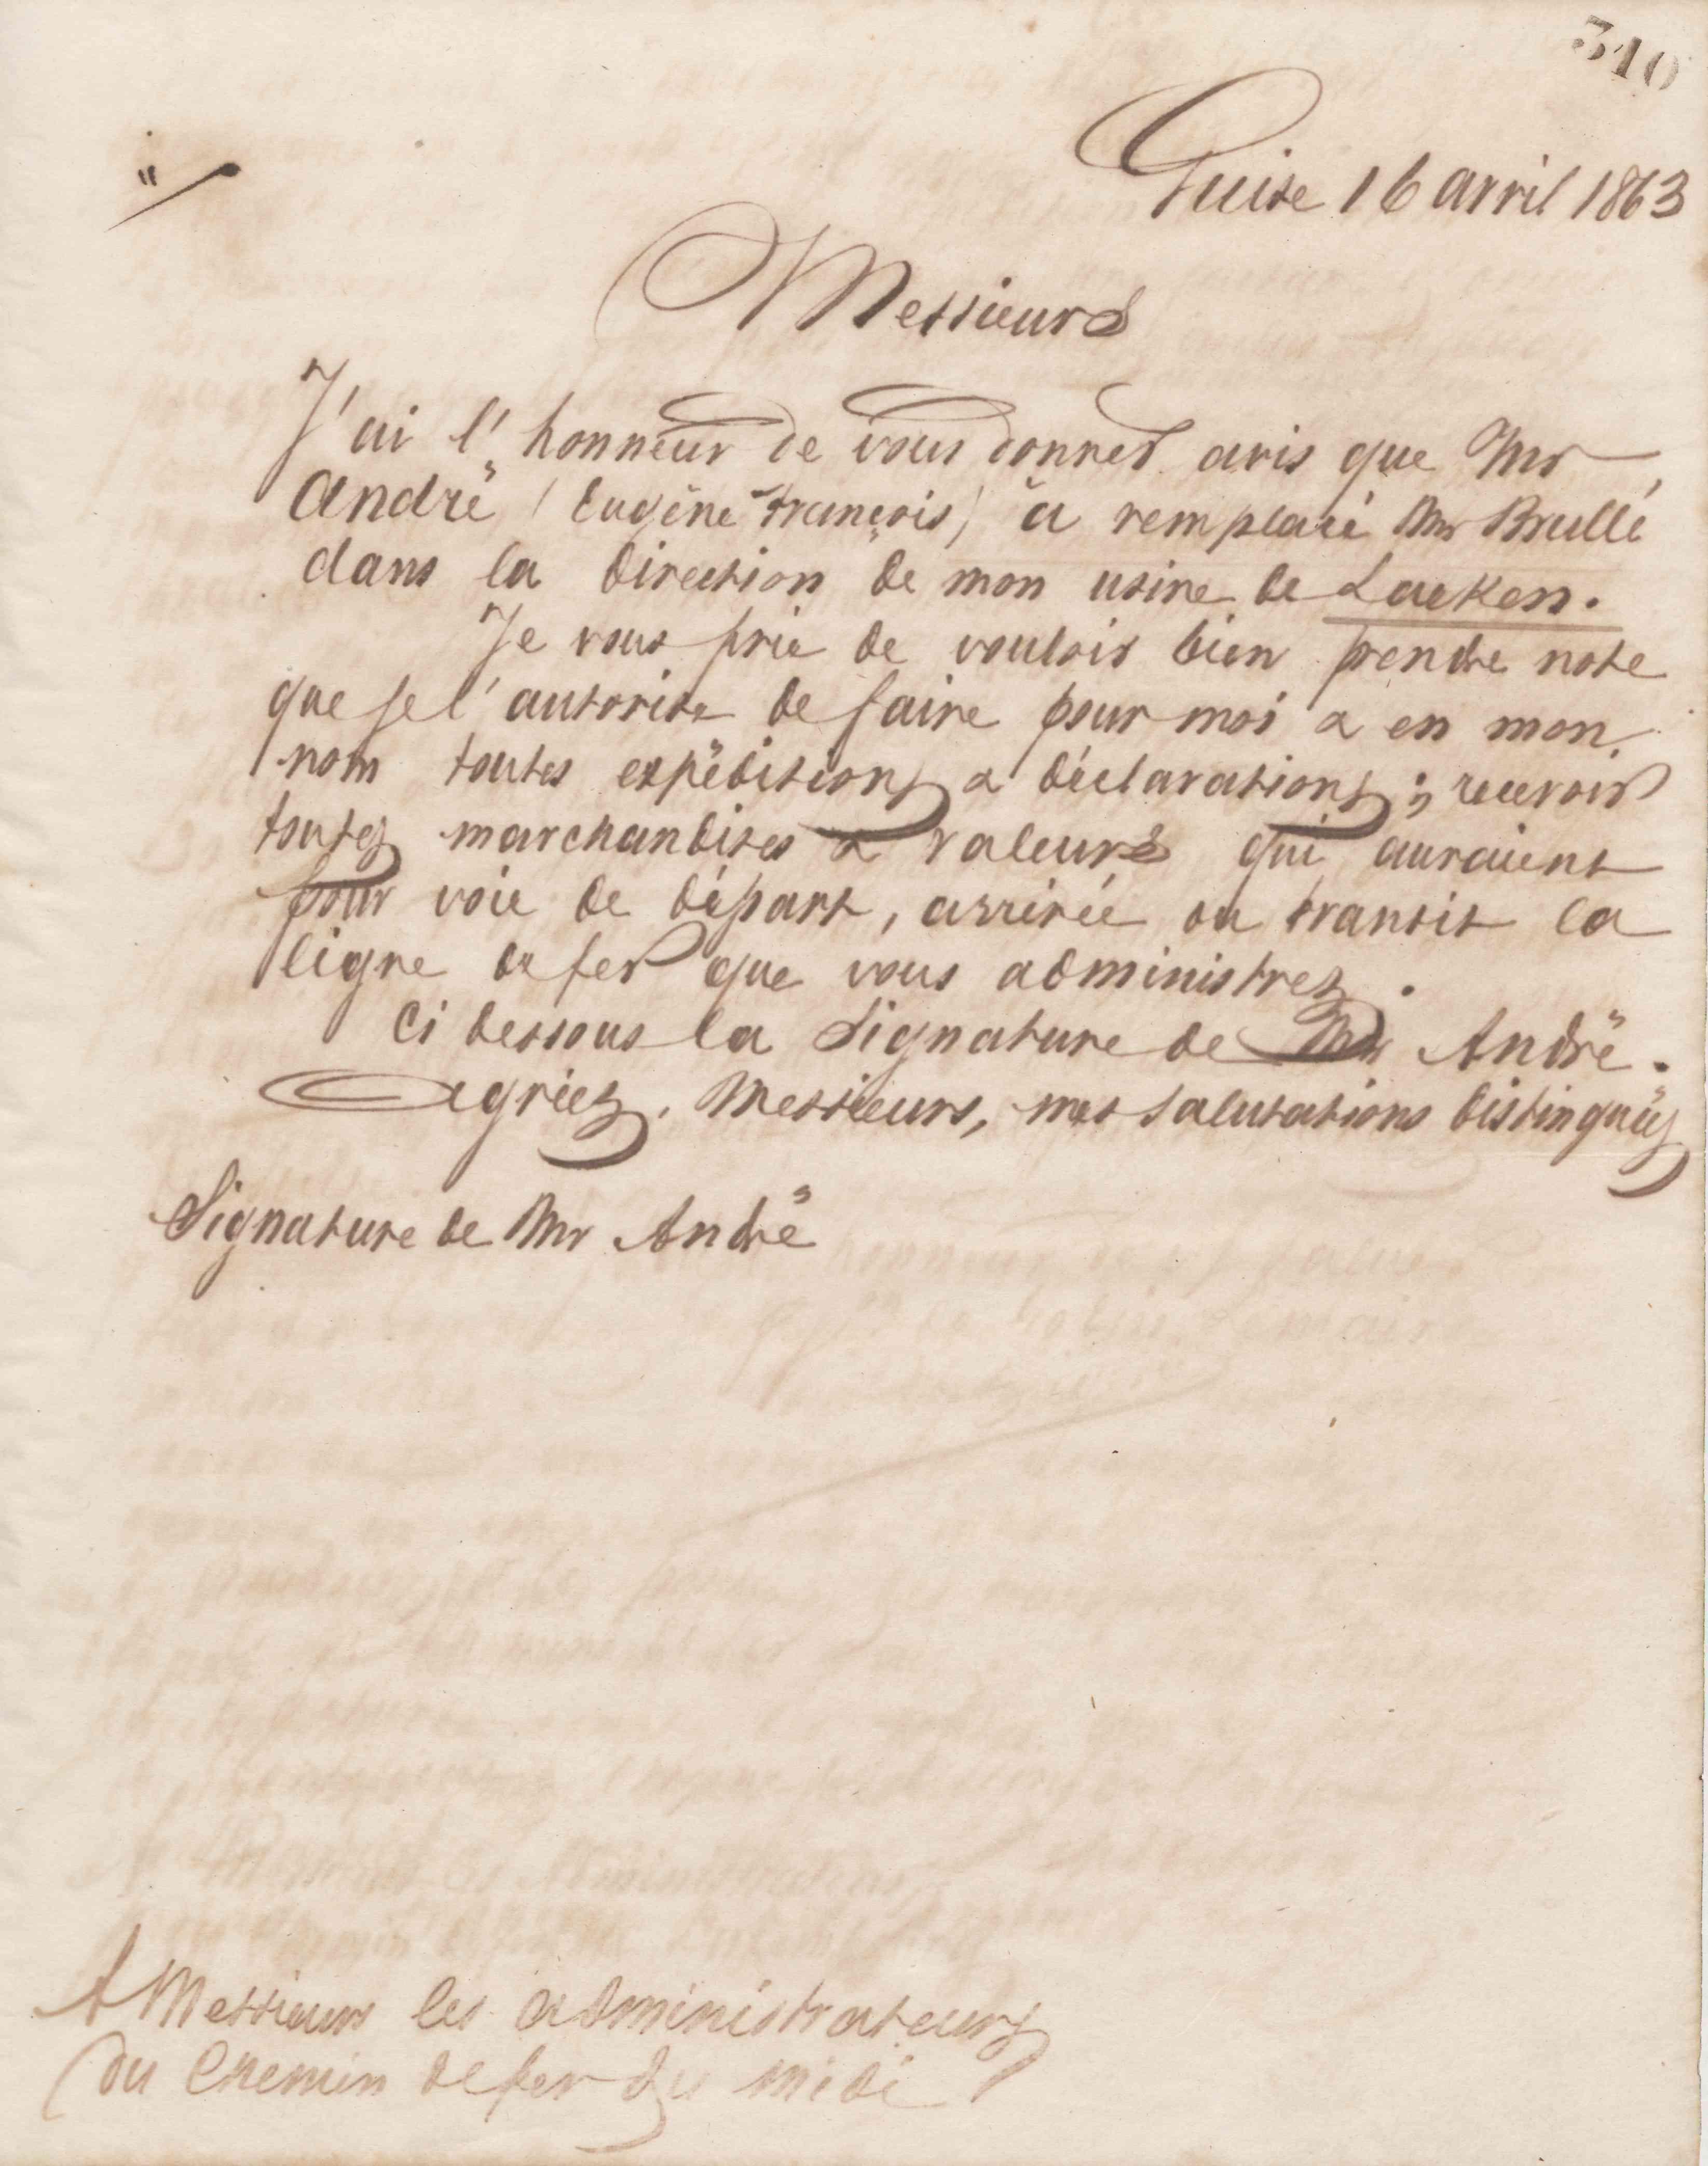 310
Guise 16 avril 1863
Messieurs
J'ai l'honneur de vous donner avis que Mr
André (Eugène François) a remplacé Mr Brullé
dans la direction de mon usine de Laeken.
Je vous prie de vouloir bien prendre note
que je l'autorise de faire pour moi & en mon
nom toutes expéditions & déclarations; recevoir
toutes marchandises & valeurs qui auraient
pour voie de départ, arrivée ou transit la
ligne de fer que vous administrez.
Ci dessous la signature de Mr André.
Agréez, Messieurs, mes salutations distinguées
Signature de Mr André
A Messieurs les administrateurs
du Chemin de fer du midi